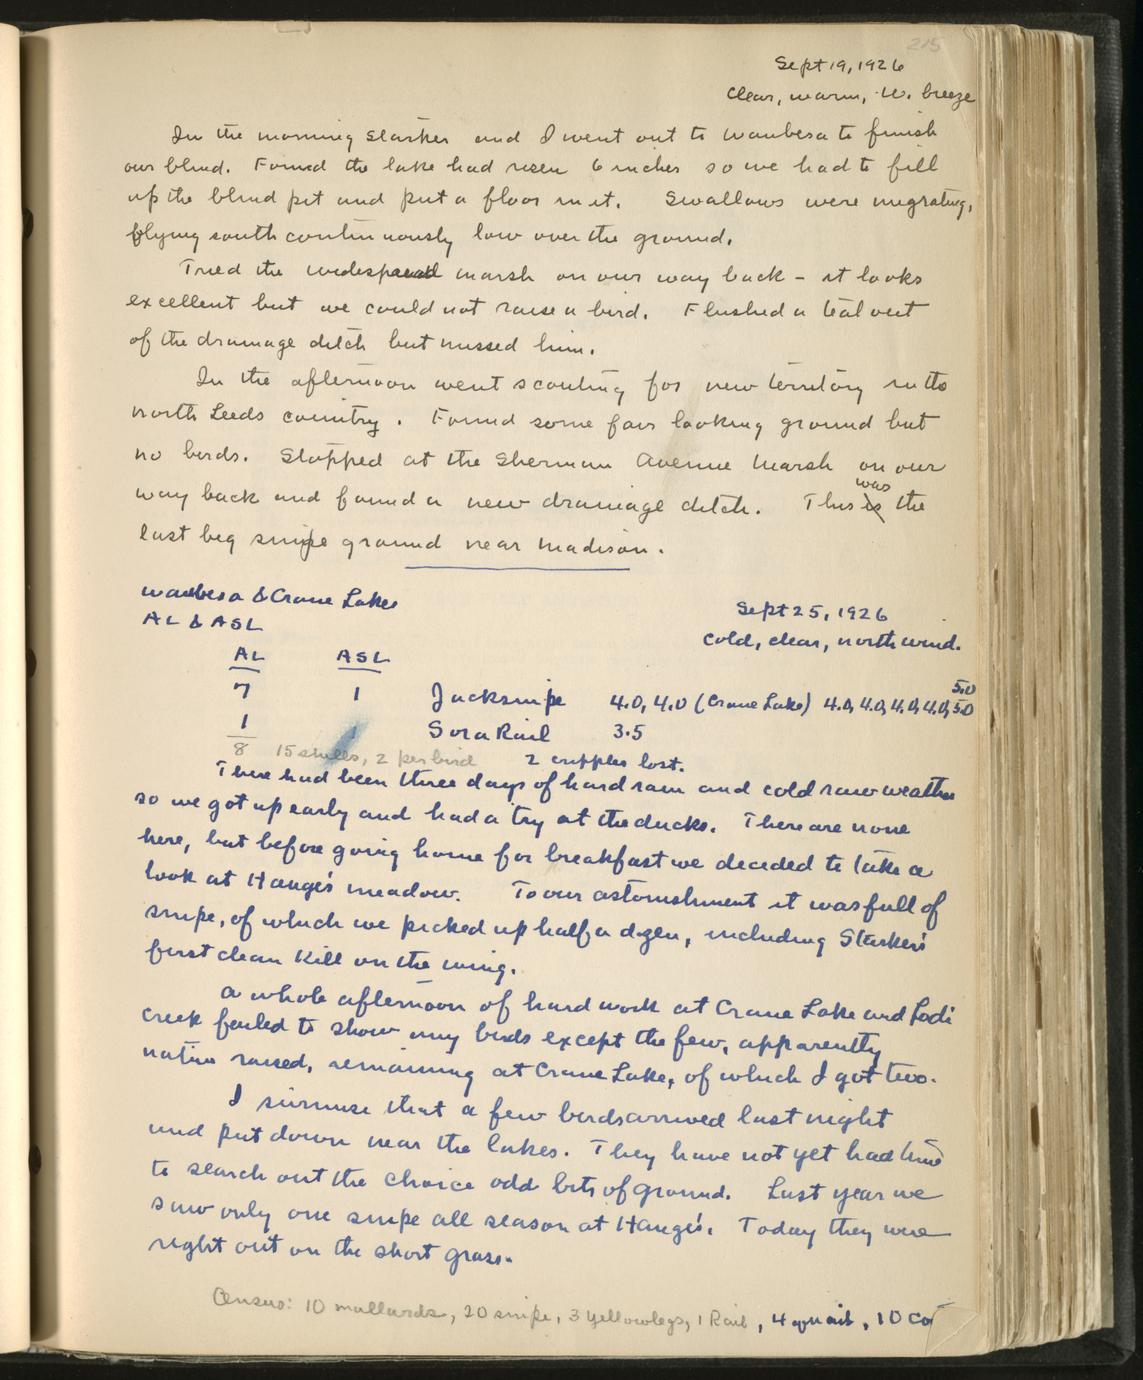 215
Sept 19, 1926
Clear, warm, W. breeze
In the morning Starker and I went out to Waubesa to finish
our blind. Found the lake had risen 6 inches so we had to fill
up the blind pit and put a floor in it. Swallows were migrating,
flying south continuously low over the ground.
Tried the widespread marsh on our way back - it looks
excellent but we could not raise a bird. Flushed a teal out
of the drainage ditch but missed him.
In the afternoon went scouting for new territory in the
north Leeds country. Found some fair looking ground but
no birds. Stopped at the Sherman Avenue Marsh on our
was
way back and found a new drainage ditch. This is the
last big snipe ground near Madison.
Waubesa & Crane Lakes
Sept 25, 1926
AL & ASL
Cold, clear, north wind.
AL ASL
5.0
7 1 Jacksnipe 4.0, 4.0 (Crane Lake) 4.0, 4.0, 4.0, 4.0, 5.0
1 Sora Rail 3.5
8 15 shells, 2 per bird 2 cripples lost.
There had been three days of hard rain and cold raw weather
so we got up early and had a try at the ducks. There are none
here, but before going home for breakfast we decided to take a
look at Hauge's meadow. To our astonishment it was full of
snipe, of which we picked up half a dozen, including Starker's
first clean kill on the wing.
A whole afternoon of hard work at Crane Lake and Lodi
Creek failed to show any birds except the few, apparently
native raised, remaining at Crane Lake, of which I got two.
I surmise that a few birds arrived last night
and put down near the lakes. They have not yet had time
to search out the choice odd bits of ground. Last year we
saw only one snipe all season at Hauge's. Today they were
right out on the short grass.
Census: 10 mallards, 20 snipe, 3 yellowlegs, 1 Rail, 4 quail, 10